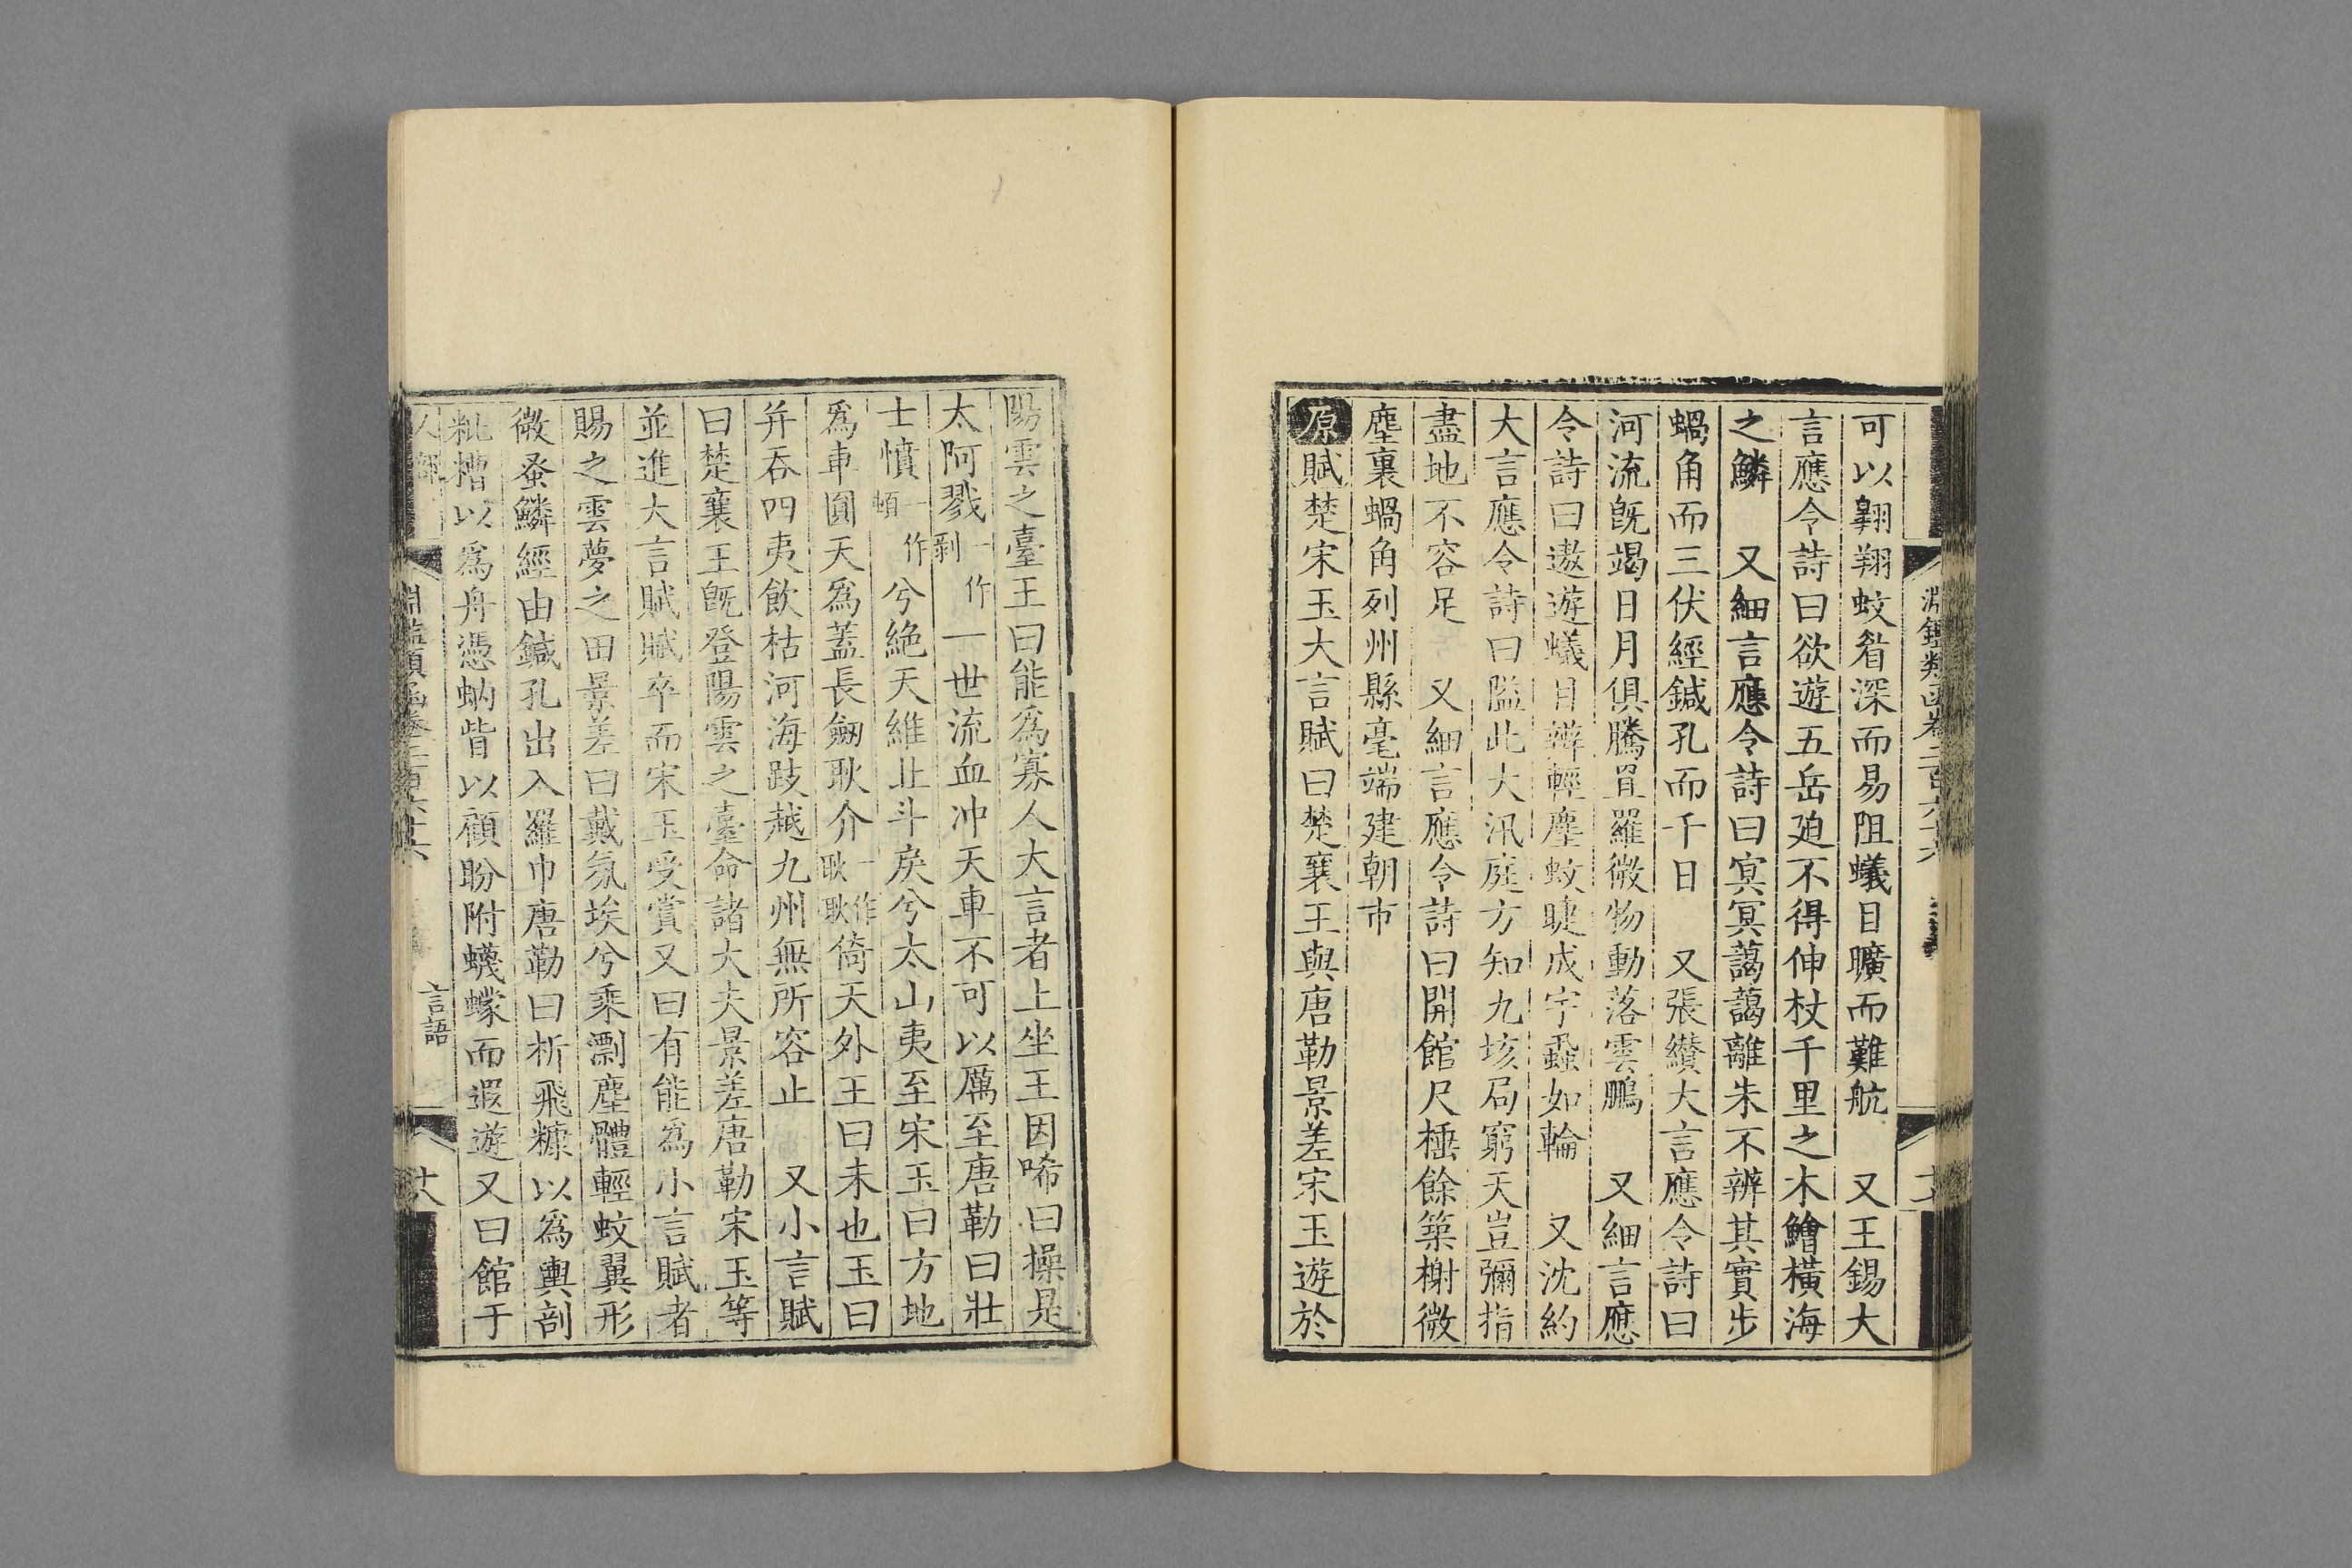 可以翺翔蚊眉深而易阻蟻目曠而難航　又王錫大
言應令詩曰欲遊五岳廹不得伸杖千里之木鱠橫海
之鱗　又細言應令詩曰㝠㝠藹藹離朱不辨其實步
蝸角而三伏經鍼孔而千日　又張纘大言應令詩曰
河流旣竭日月俱騰罝羅微物動落雲鵬　又細言應
令詩曰遨遊蟻目辨輕塵蚊睫成宇蝨如輪　又沈約
大言應令詩曰隘此大汛庭方知九垓局窮天豈彌指
盡地不容足　又細言應令詩曰開館尺棰餘築榭微
塵裏蝸角列州縣毫端建朝市
原賦楚宋玉大言賦曰楚襄王與唐勒景差宋玉遊於
陽雲之臺王曰能爲寡人大言者上坐王因唏曰操是
太阿戮一作剥一世流血冲天車不可以厲至唐勒曰壯
士憤一作頓兮絶天維北斗戾兮太山夷至宋玉曰方地
爲車圓天爲蓋長劒耿介一作耿耿倚天外王曰未也玉曰
并吞四夷飲枯河海跂越九州無所容止　又小言賦
曰楚襄王旣登陽雲之臺命諸大夫景差唐勒宋玉等
並進大言賦賦卒而宋玉受賞又曰有能爲小言賦者
賜之雲夢之田景差曰戴氛埃兮乘剽塵體輕蚊翼形
微蚤鱗經由鍼孔出入羅巾唐勒曰析飛糠以爲輿剖
粃糟以爲舟憑蚋眥以顧盼附蠛蠓而遐遊又曰館于
人部
言語